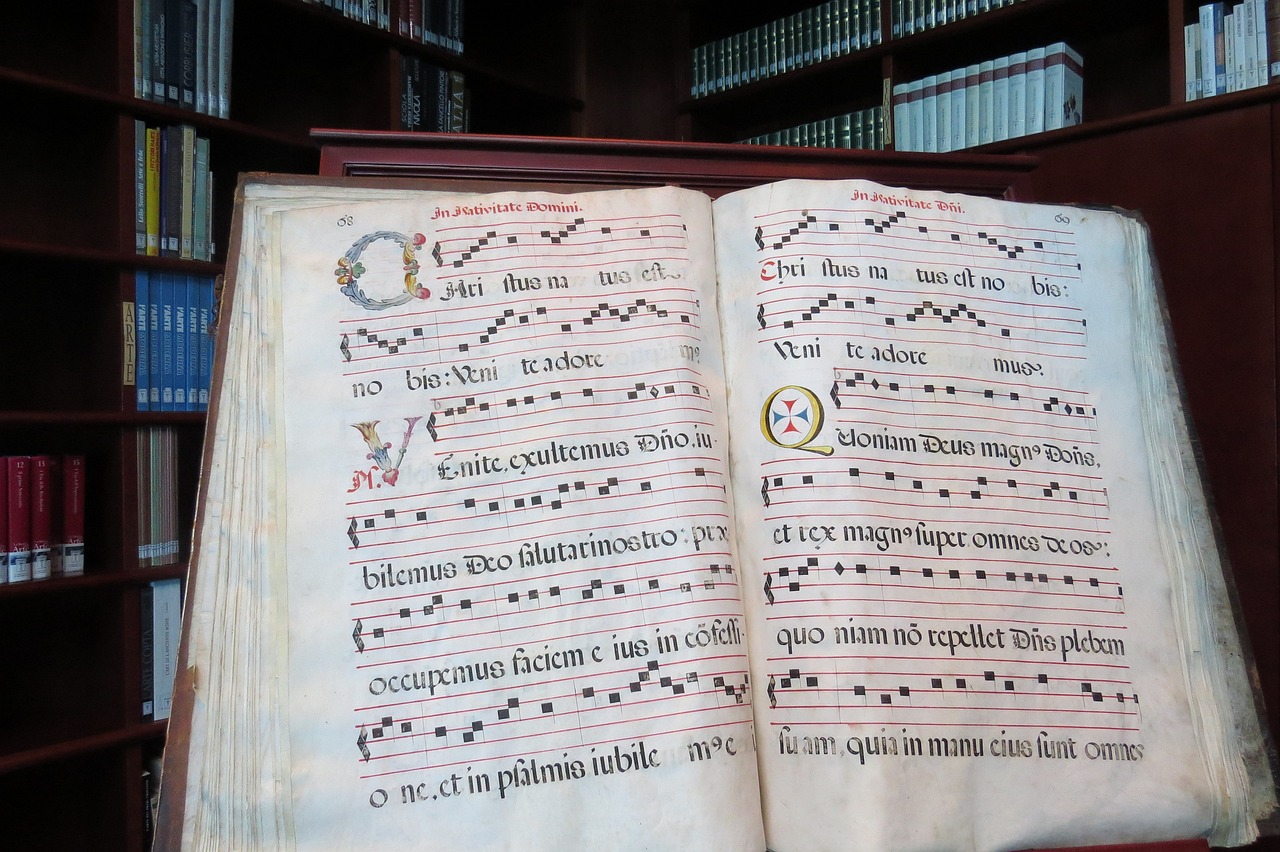 68
In Nativitate Domini.
CHri stus na tus est
no bis: Veni te adore m9
Ps. VEnite, exultemus Dño, iu-
bilemus Deo salutari nostro: præ
occupemus faciem e ius in cõfessi-
o ne, et in psalmis iubile m9 e
69
In Nativitate Dñi.
Chri stus na tus est no bis:
Veni te adore mus.
Quoniam Deus magn9 Doñs,
et rex magn9 super omnes deos:
quo niam nõ repellet Dñs plebem
su am, quia in manu eius sunt omnes
ARTE
L'ARTE
L'ARTE
L'ARTE
L'ARTE
L'ARTE